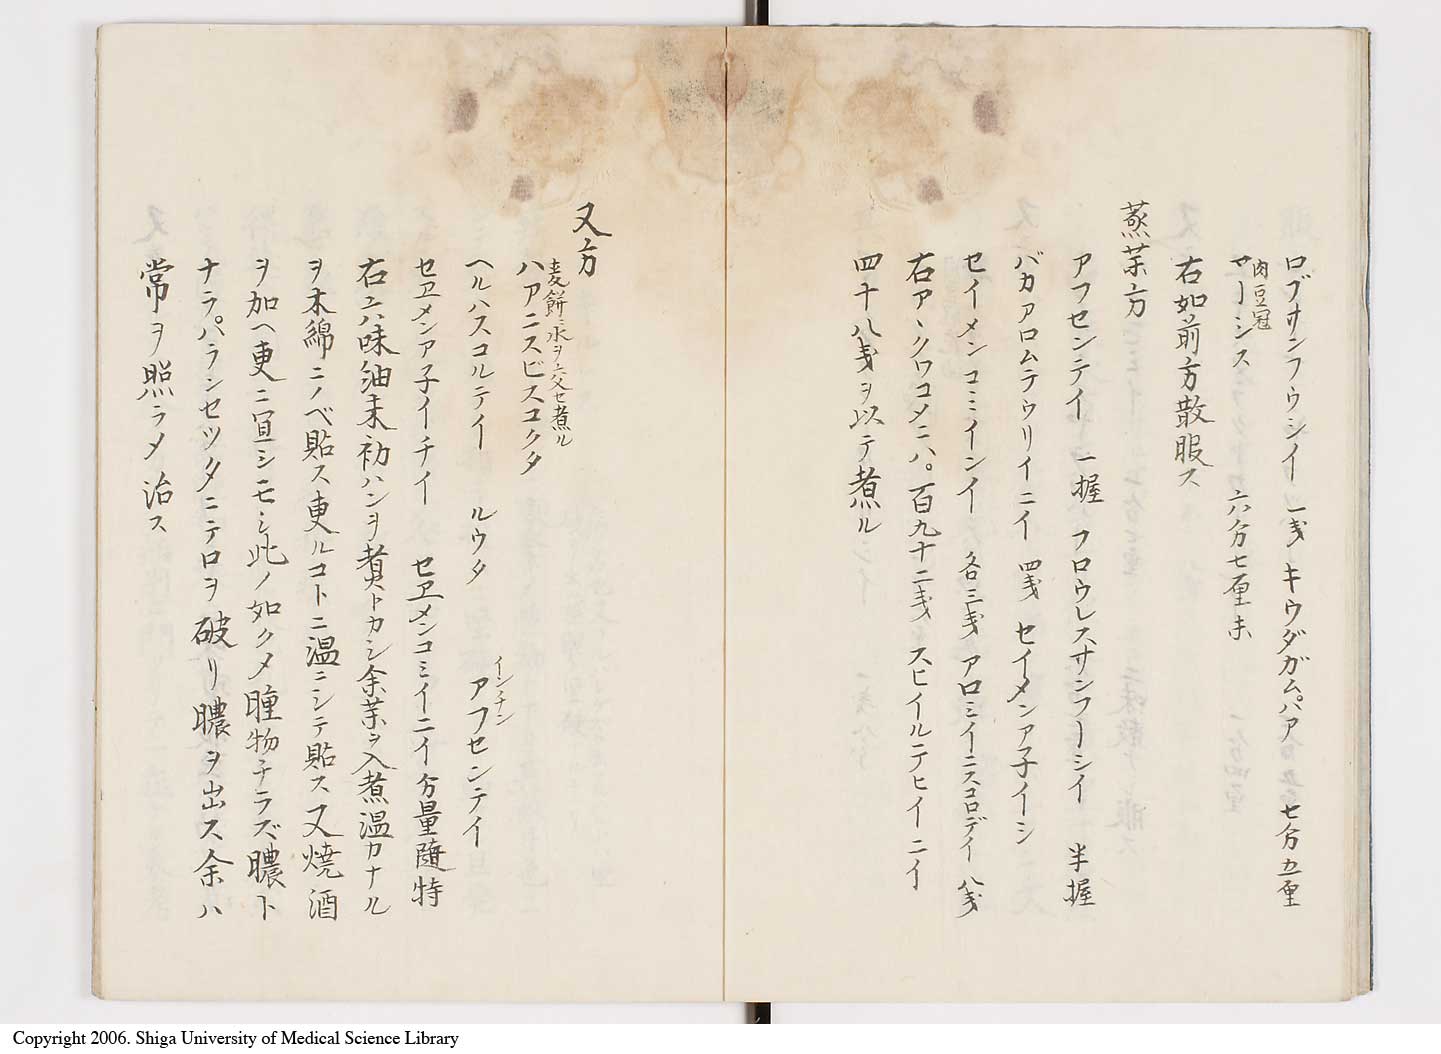 ロブサンフウシイ 一戔 キウダガムパア 七分五厘
肉豆冠
マーシス 六分七厘 末
右如前方散服ス
蒸茶方
アフセンテイ 一握 フロウレスサンフーシイ 半握
バカアロムテウリイニイ 四戔 セイメンア子イーシ
セイメンコミインイ 各三戔 アロミイニスコロデイ 八戔
右アヽクワコメニハ。百九十二戔 スピイルテヒイニイ
四十八戔ヲ以テ煮ル
又方
麦餅ニ水ヲ 煮ル
ハアニスビスコクタ
ヘルハスコルテイー ルウタ アフセンテイ
インチン
セヱメンア子イチイ セヱメンコミイニイ 分量随時
右六味油末初ハンヲ煮トカシ余薬ヲ入煮温カナル
ヲ木綿ニノベ貼ス更ルコトニ温ニシテ貼ス又焼酒
ヲ加ヘ更ニ宜シモシ此ノ如クメ腫物チラズ膿ト
ナラバランセツタニテロヲ破リ膿ヲ出ス余ハ
常ヲ照ラメ治ス
Copyright 2006. Shiga University of Medical Science Library